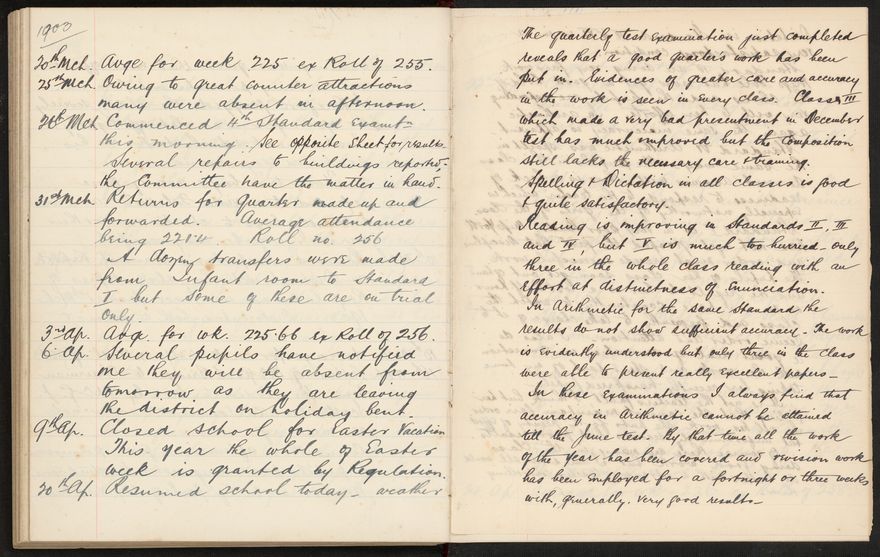 1903
20th Mch. Avge for week 225 ex Roll of 255.
25th Mch. Owing to great counter attractions
many were absent in afternoon.
26th Mch Commenced 4th Standard Examtn
this morning. See opposite sheet for results.
Several repairs to buildings reported;
the Committee have the matter in hand.
31st Mch. Returns for quarter made up and
forwarded. Average attendance
being Roll no. 256
A dozen transfers were made
from Infant room to Standard
I but some of these are on trial
only.
3rd Ap. Avge. for wk. 225.66 ex Roll of 256.
6 Ap. Several pupils have notified
me they will be absent from
tomorrow as they are leaving
the district on holiday bent.
9th Ap. Closed school for Easter Vacation
This year the whole of Easter
week is granted by Regulation.
20th Ap. Resumed school today - weather
The quarterly test examination just completed
reveals that a good quarter's work has been
put in. Evidences of greater care and accuracy
in the work is seen in every class. Class III
which made a very bad presentment in December
test has much improved but the Composition
still lacks the necessary care & training.
Spelling & Dictation in all classes is good
& quite satisfactory.
Reading is improving in Standards II, III
and IV, but V is much too hurried. only
three in the whole class reading with an
effort at distinctness of enunciation.
In Arithmetic for the same Standard the
results do not show sufficient accuracy - The work
is evidently understood but only three in the class
were able to present really excellent papers -
In these examinations I always find that
accuracy in Arithmetic cannot be attained
till the June test. By that time all the work
of the year has been covered and revision work
has been employed for a fortnight or three weeks
with, generally, very good results -